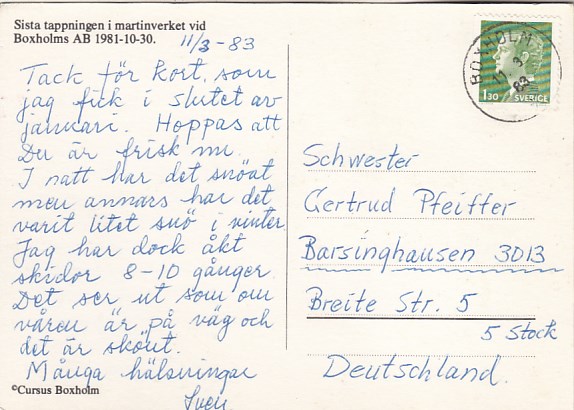 Sista tappningen i martinverket vid
Boxholms AB 1981-10-30.
11/3 - 83
Tack för kort, som
jag fick i slutet av
januari. Hoppas att
Du är frisk nu.
I natt har det snöat
men annars har det
varit litet snö i vinter.
Jag har dock åkt
skidor 8-10 gånger.
Det ser ut som om
våren är på väg och
det är skönt.
Många hälsningar
Sven.
©Cursus Boxholm
BOXHOLM
11 3
83
1.30 SVERIGE
Schwester
Gertrud Pfeiffer
Barsinghausen 3013
Breite Str. 5
5 Stock
Deutschland.